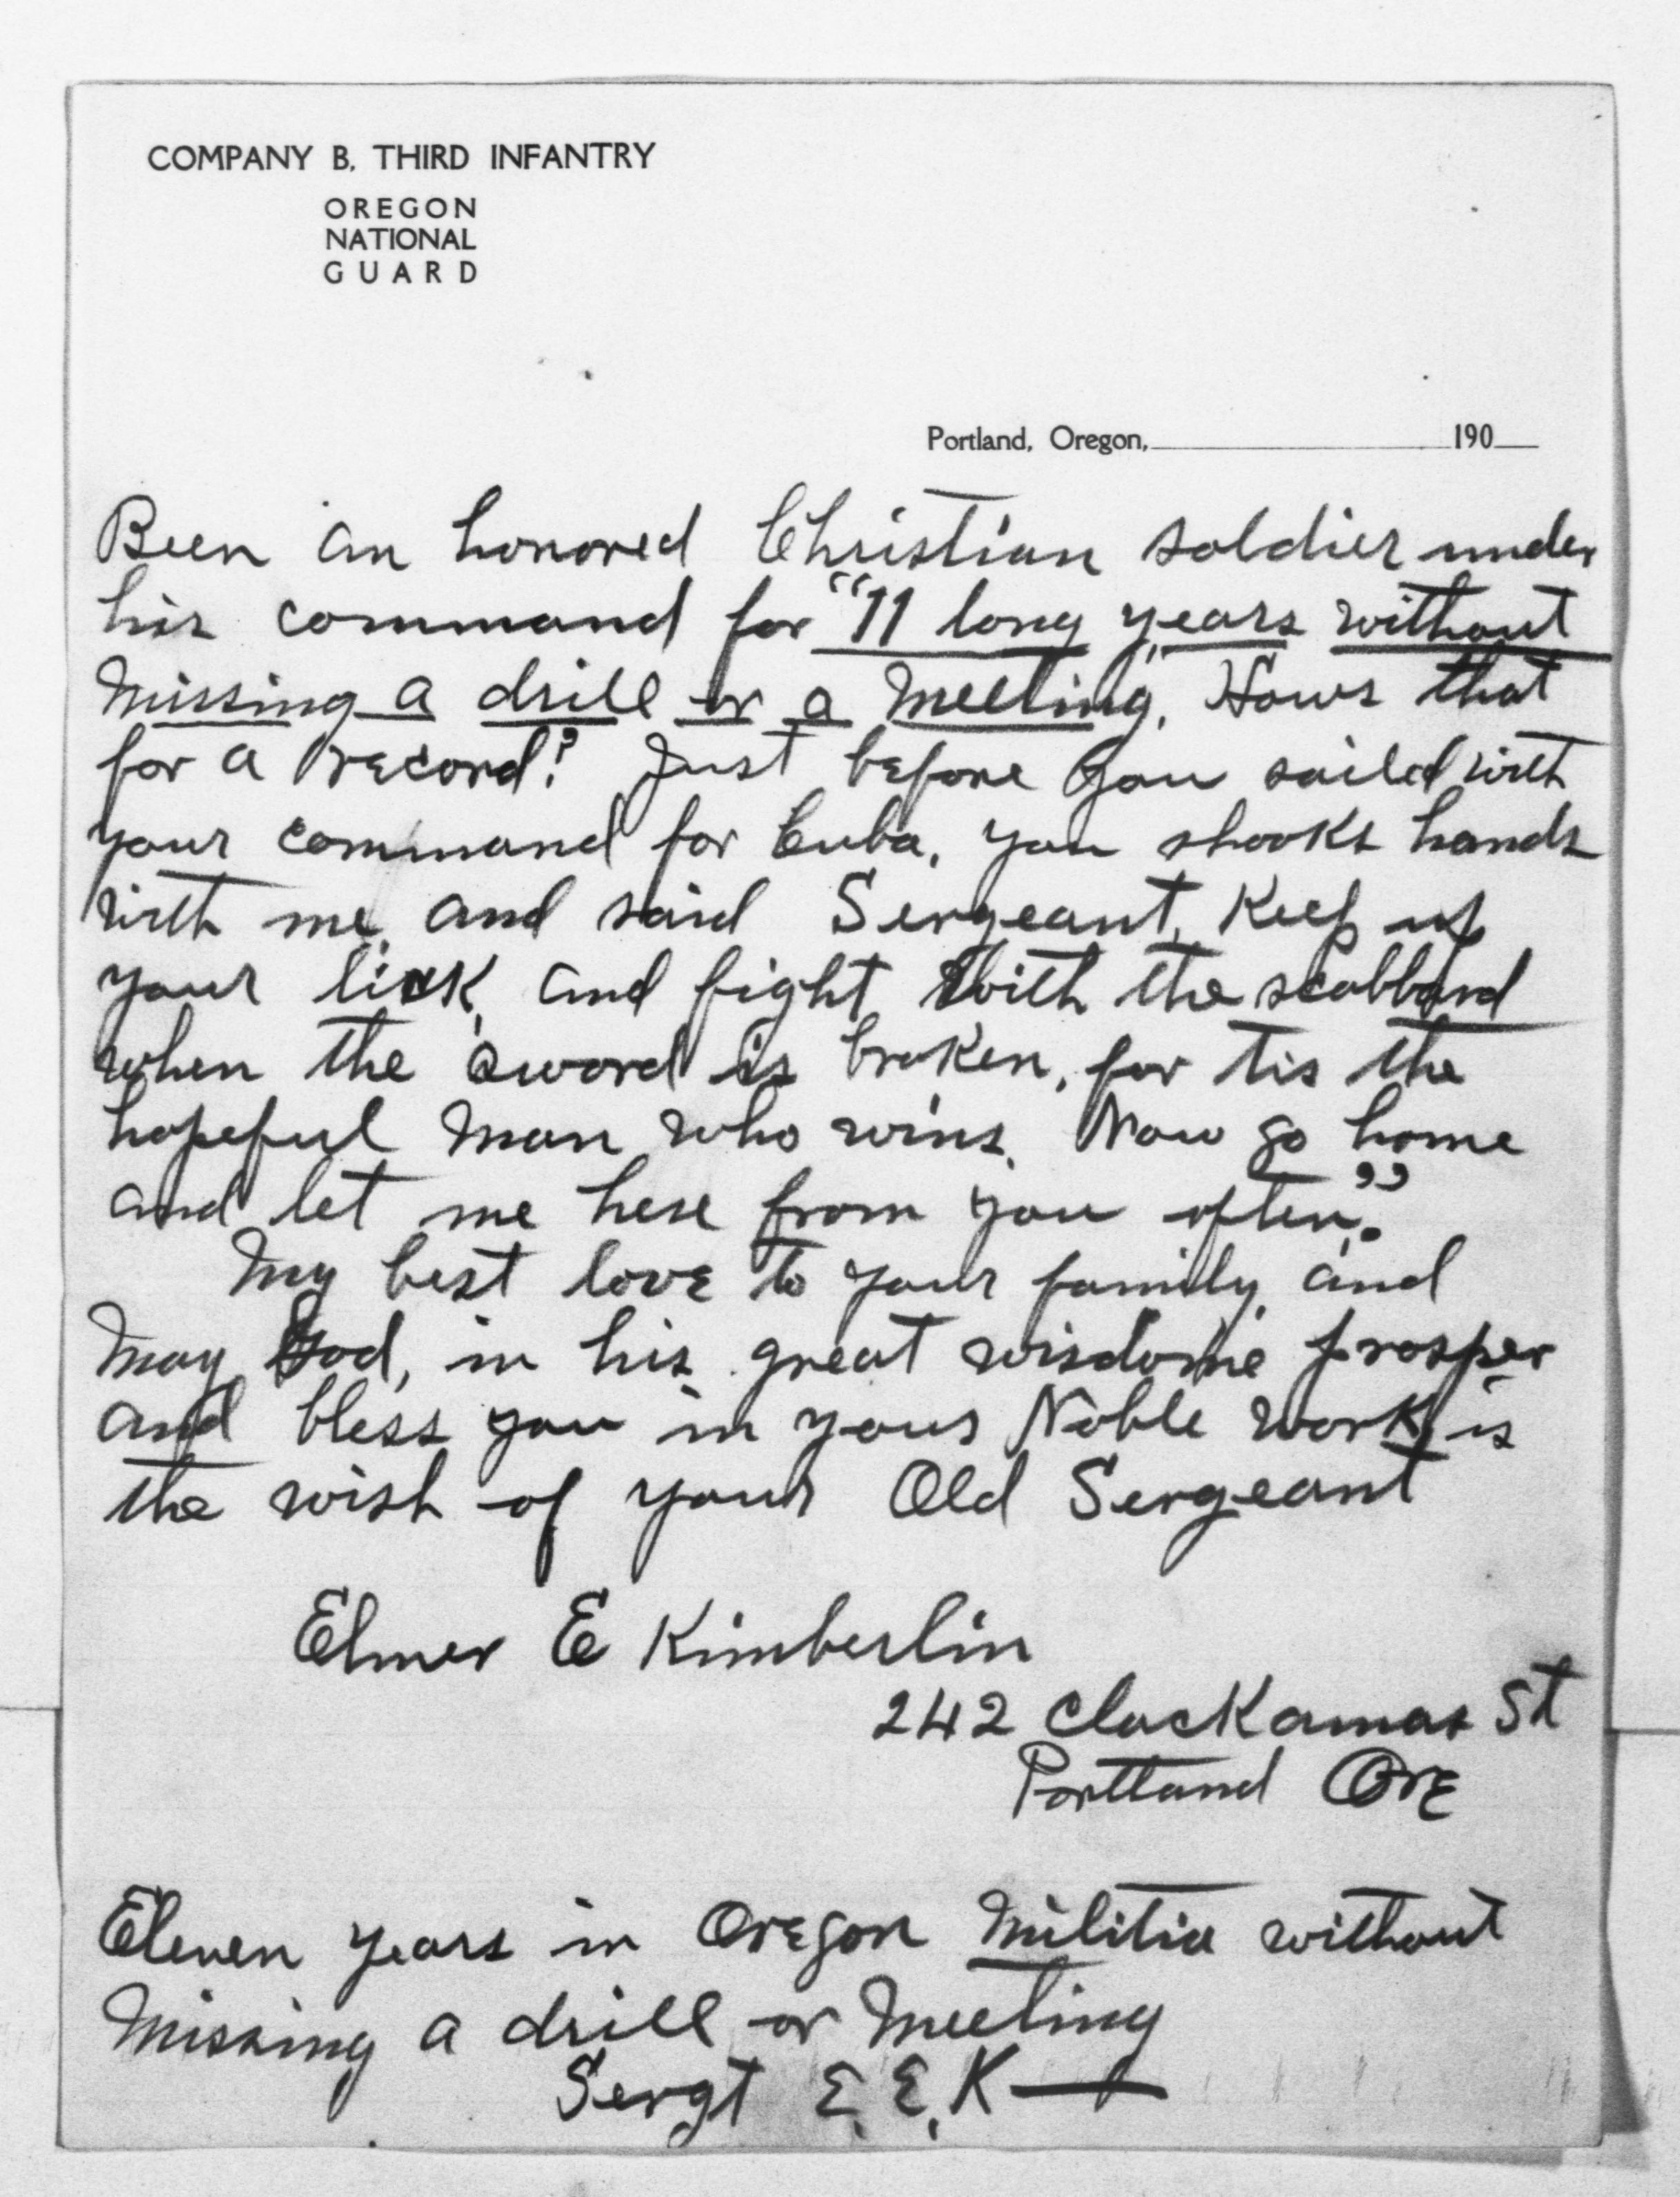 COMPANY B, THIRD INFANTRY
OREGON
NATIONAL
GUARD
Portland, Oregon, 190
Been an honored Christian soldier under
his command for "11 long years without
missing a drill or a meeting." Hows that
for a record? Just before you sailed with
your command for Cuba, you shooks hands
with me, and said Sergeant, Keep up
your lick, and fight with the scabbard
when the sword is broken, for tis the
hopeful man who wins. Now go home
and let me here from you often."
My best love to your family, and
may God, in his great wisdome prosper
and bless you in your Noble work, is
the wish of your Old Sergeant
Elmer E Kimberlin
242 Clackamas St
Portland Ore
Eleven years in Oregon Militia without
missing a drill or meeting
Sergt E. E. K—